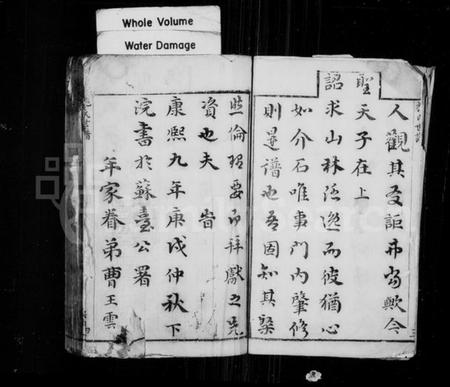 Whole Volume
Water Damage
人觀其友詎弗尚歟今
聖天子在上
詔求山林隱逸而彼猶心
如介石唯事門內肇修
則是譜也吾固知其槩
此倫明要而拜獻之先
資也夫 旹
康熙九年庚戌仲秋下
浣書於蘇臺公署
年家眷弟曹王雲